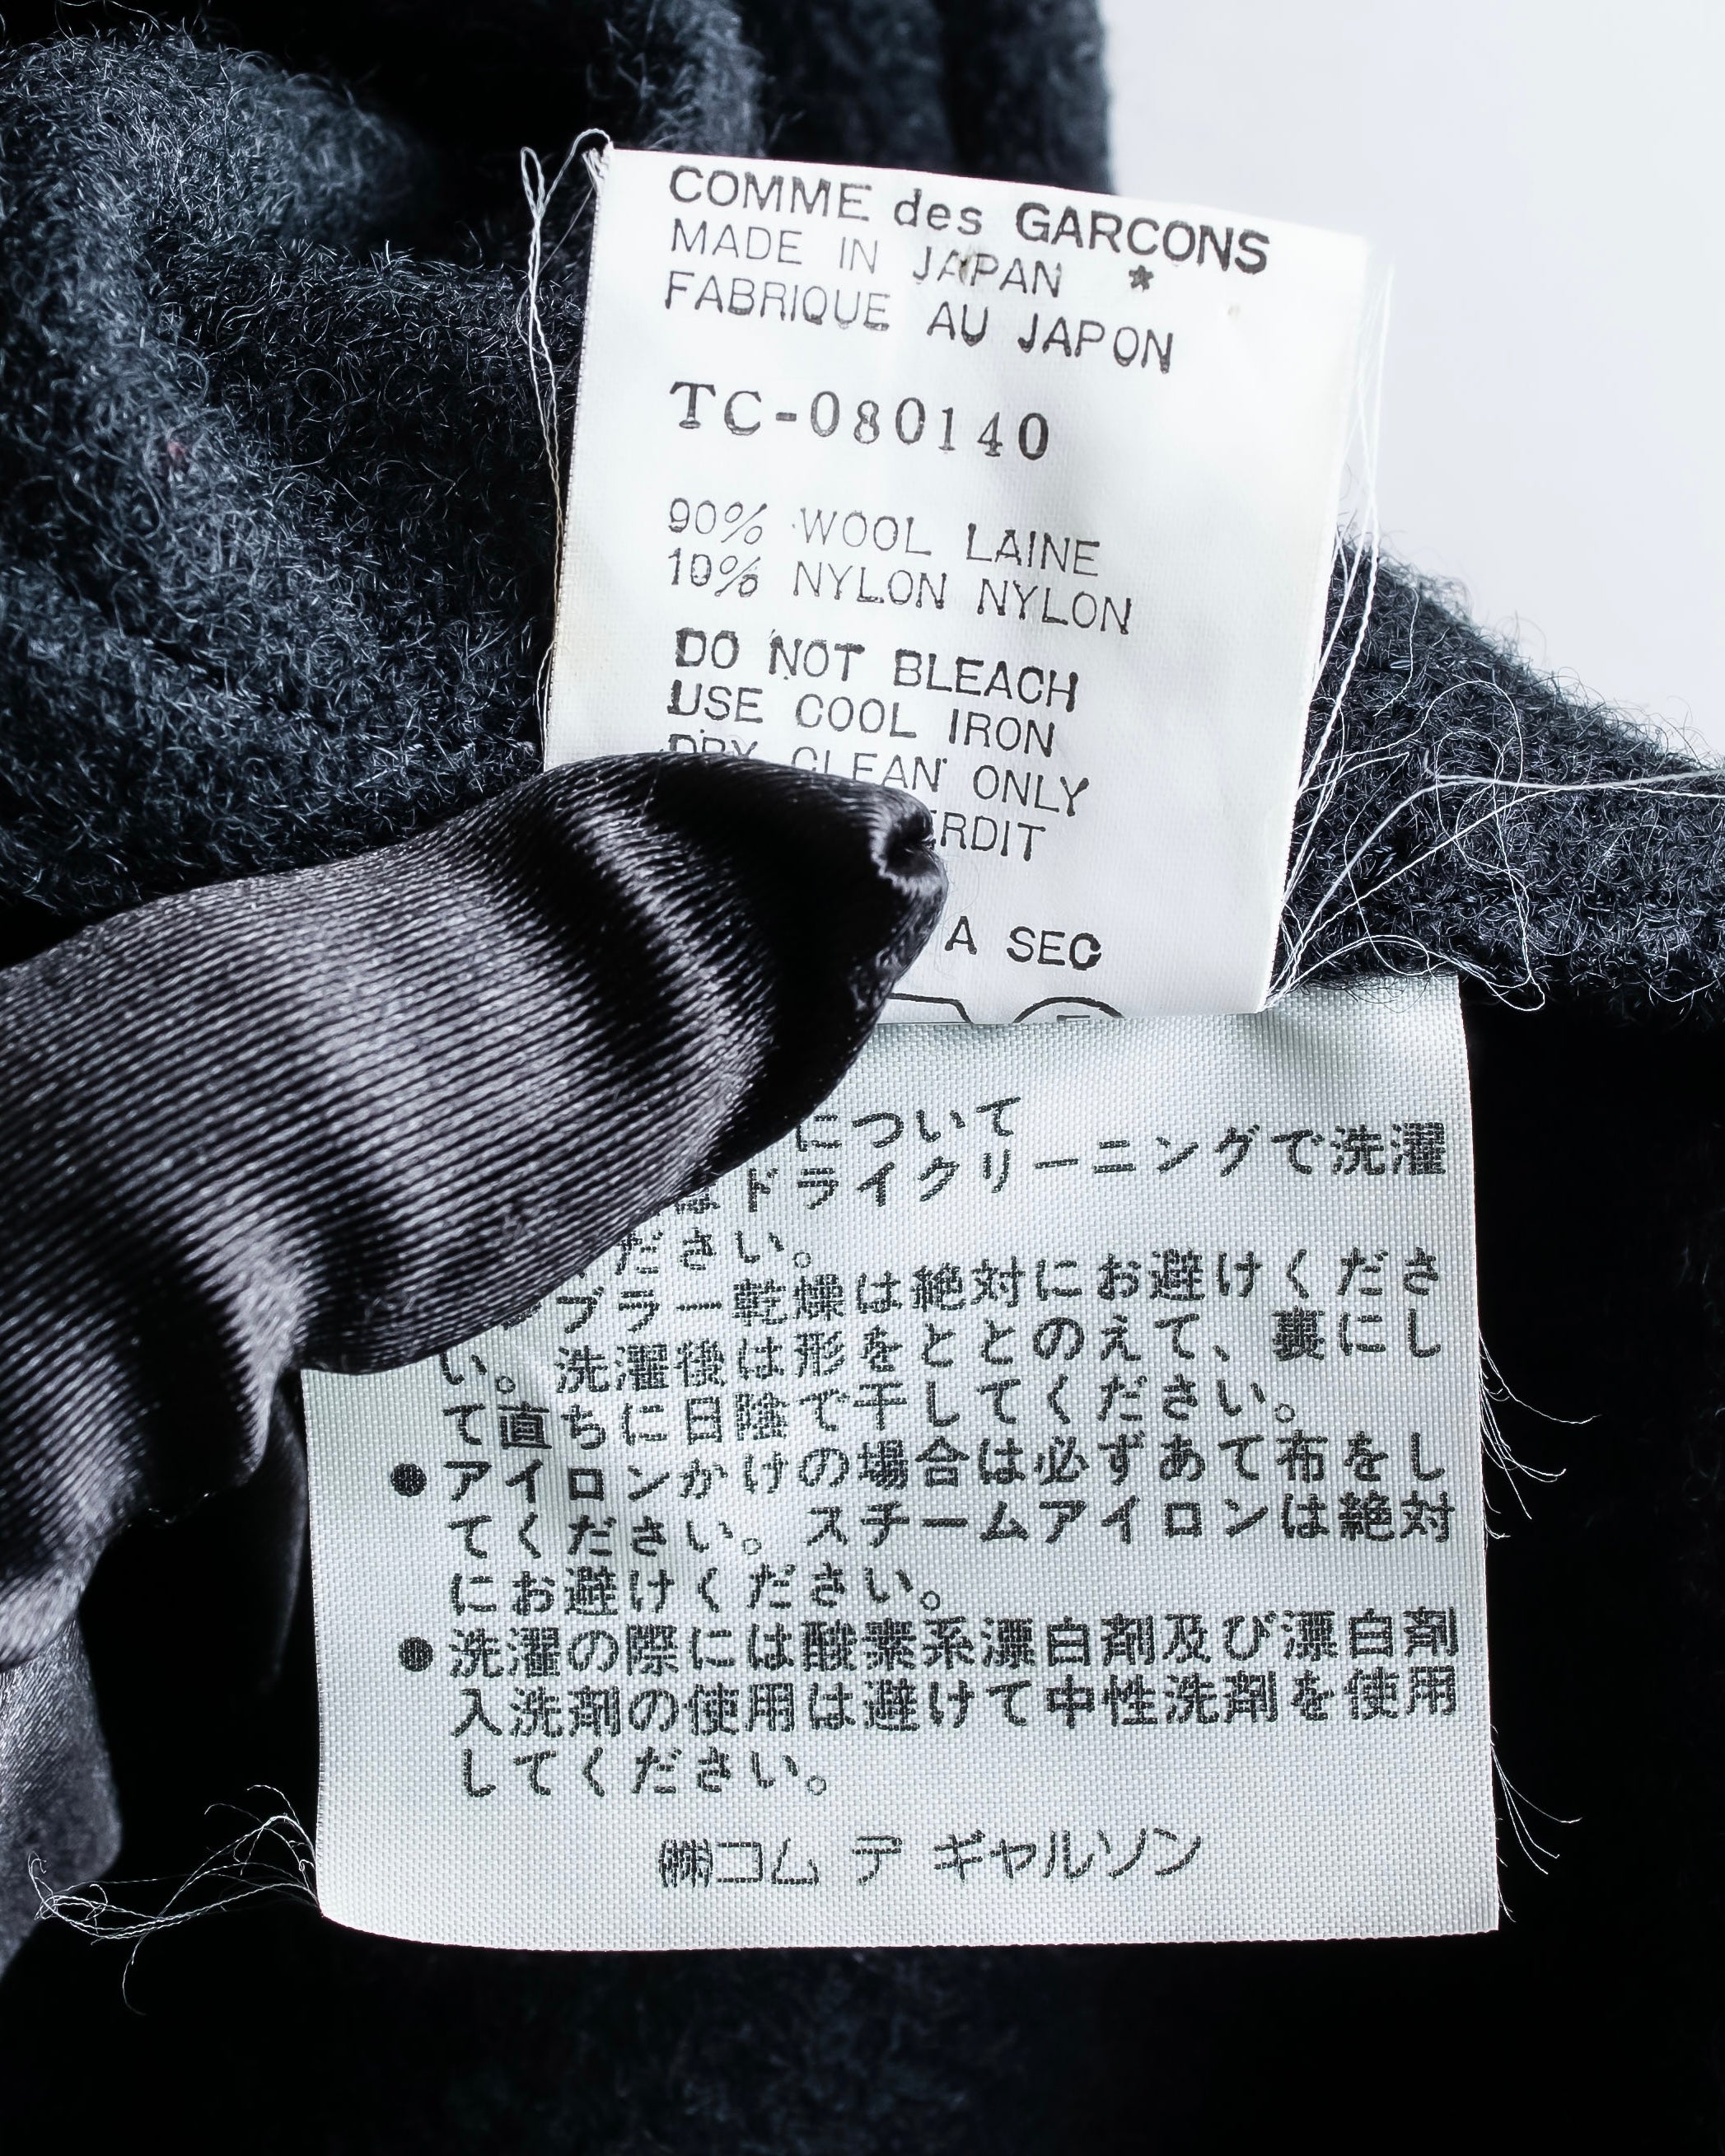 COMME des GARCONS
MADE IN JAPAN *
FABRIQUE AU JAPON
TC-080140
90% WOOL LAINE
10% NYLON NYLON
DO NOT BLEACH
USE COOL IRON
DRY CLEAN ONLY
ERDIT
A SEC
について
はドライクリーニングで洗濯
ださい。
ブラー乾燥は絶対にお避けくださ
い。洗濯後は形をととのえて、裏にし
て直ちに日陰で干してください。
●アイロンかけの場合は必ずあて布をし
てください。スチームアイロンは絶対
にお避けください。
●洗濯の際には酸素系漂白剤及び漂白剤
入洗剤の使用は避けて中性洗剤を使用
してください。
㈱コム デ ギャルソン